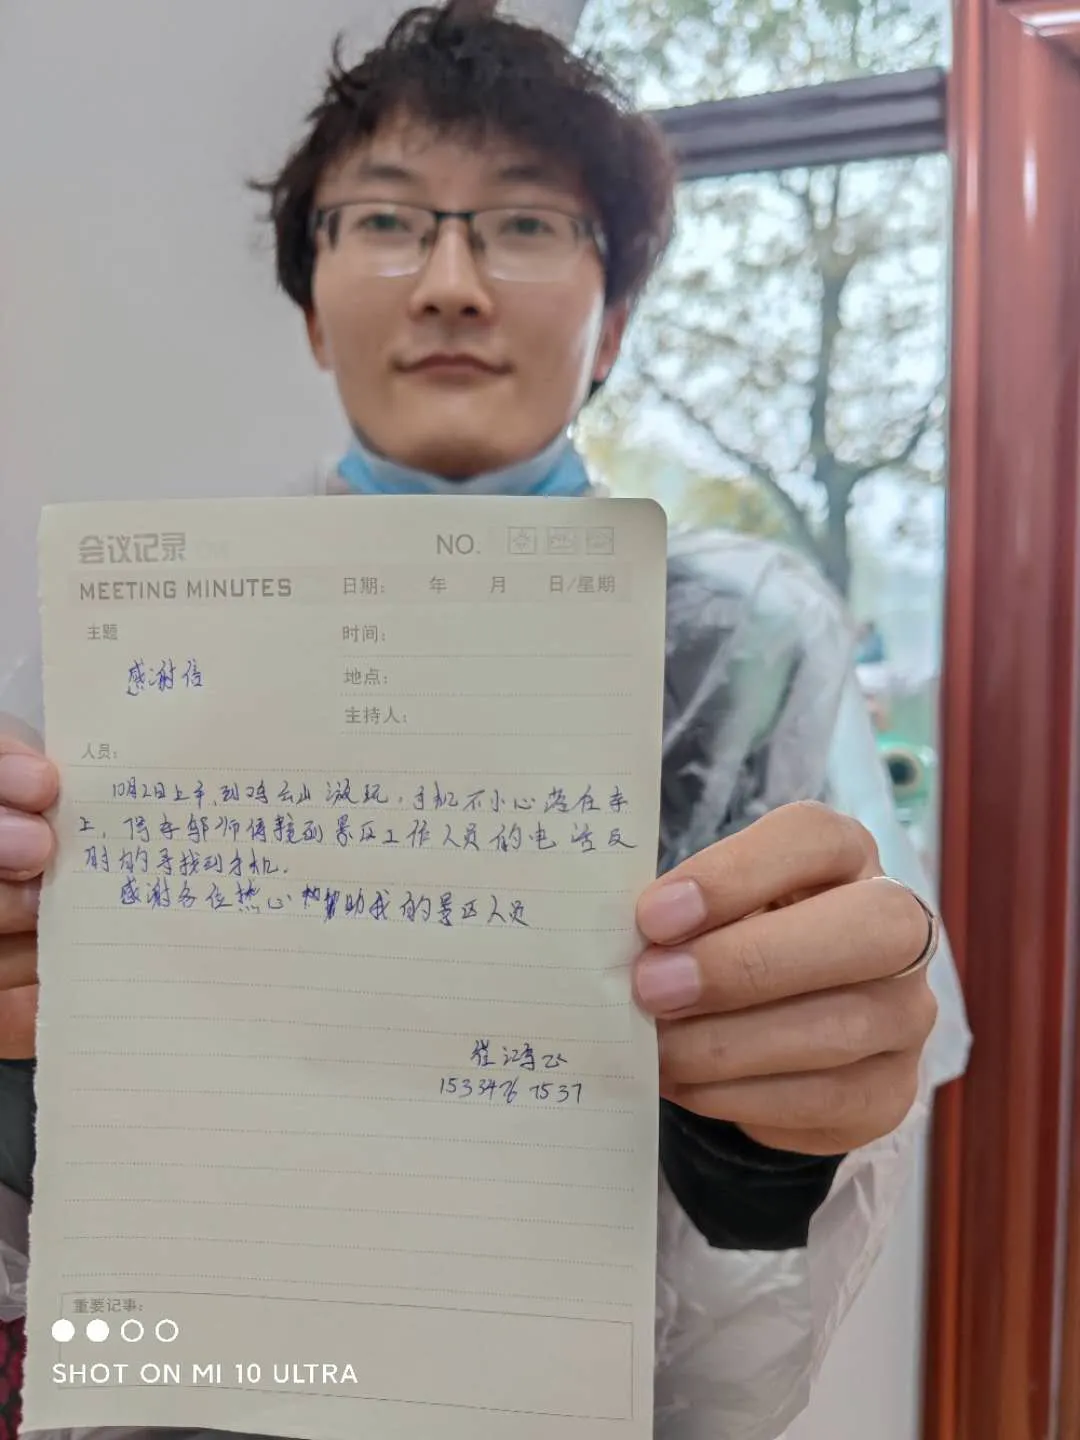 会议记录
NO.
MEETING MINUTES
日期: 年 月 日/星期
主题
时间:
感谢信
地点:
主持人:
人员:
10月2日上午,到鸡公山游玩,手机不小心落在车
上,得车邹师傅 到景区工作人员的电话及
时的寻找到手机.
感谢各位热心帮助我的景区人员
鸿飞
1533476 7537
重要记事:
SHOT ON MI 10 ULTRA